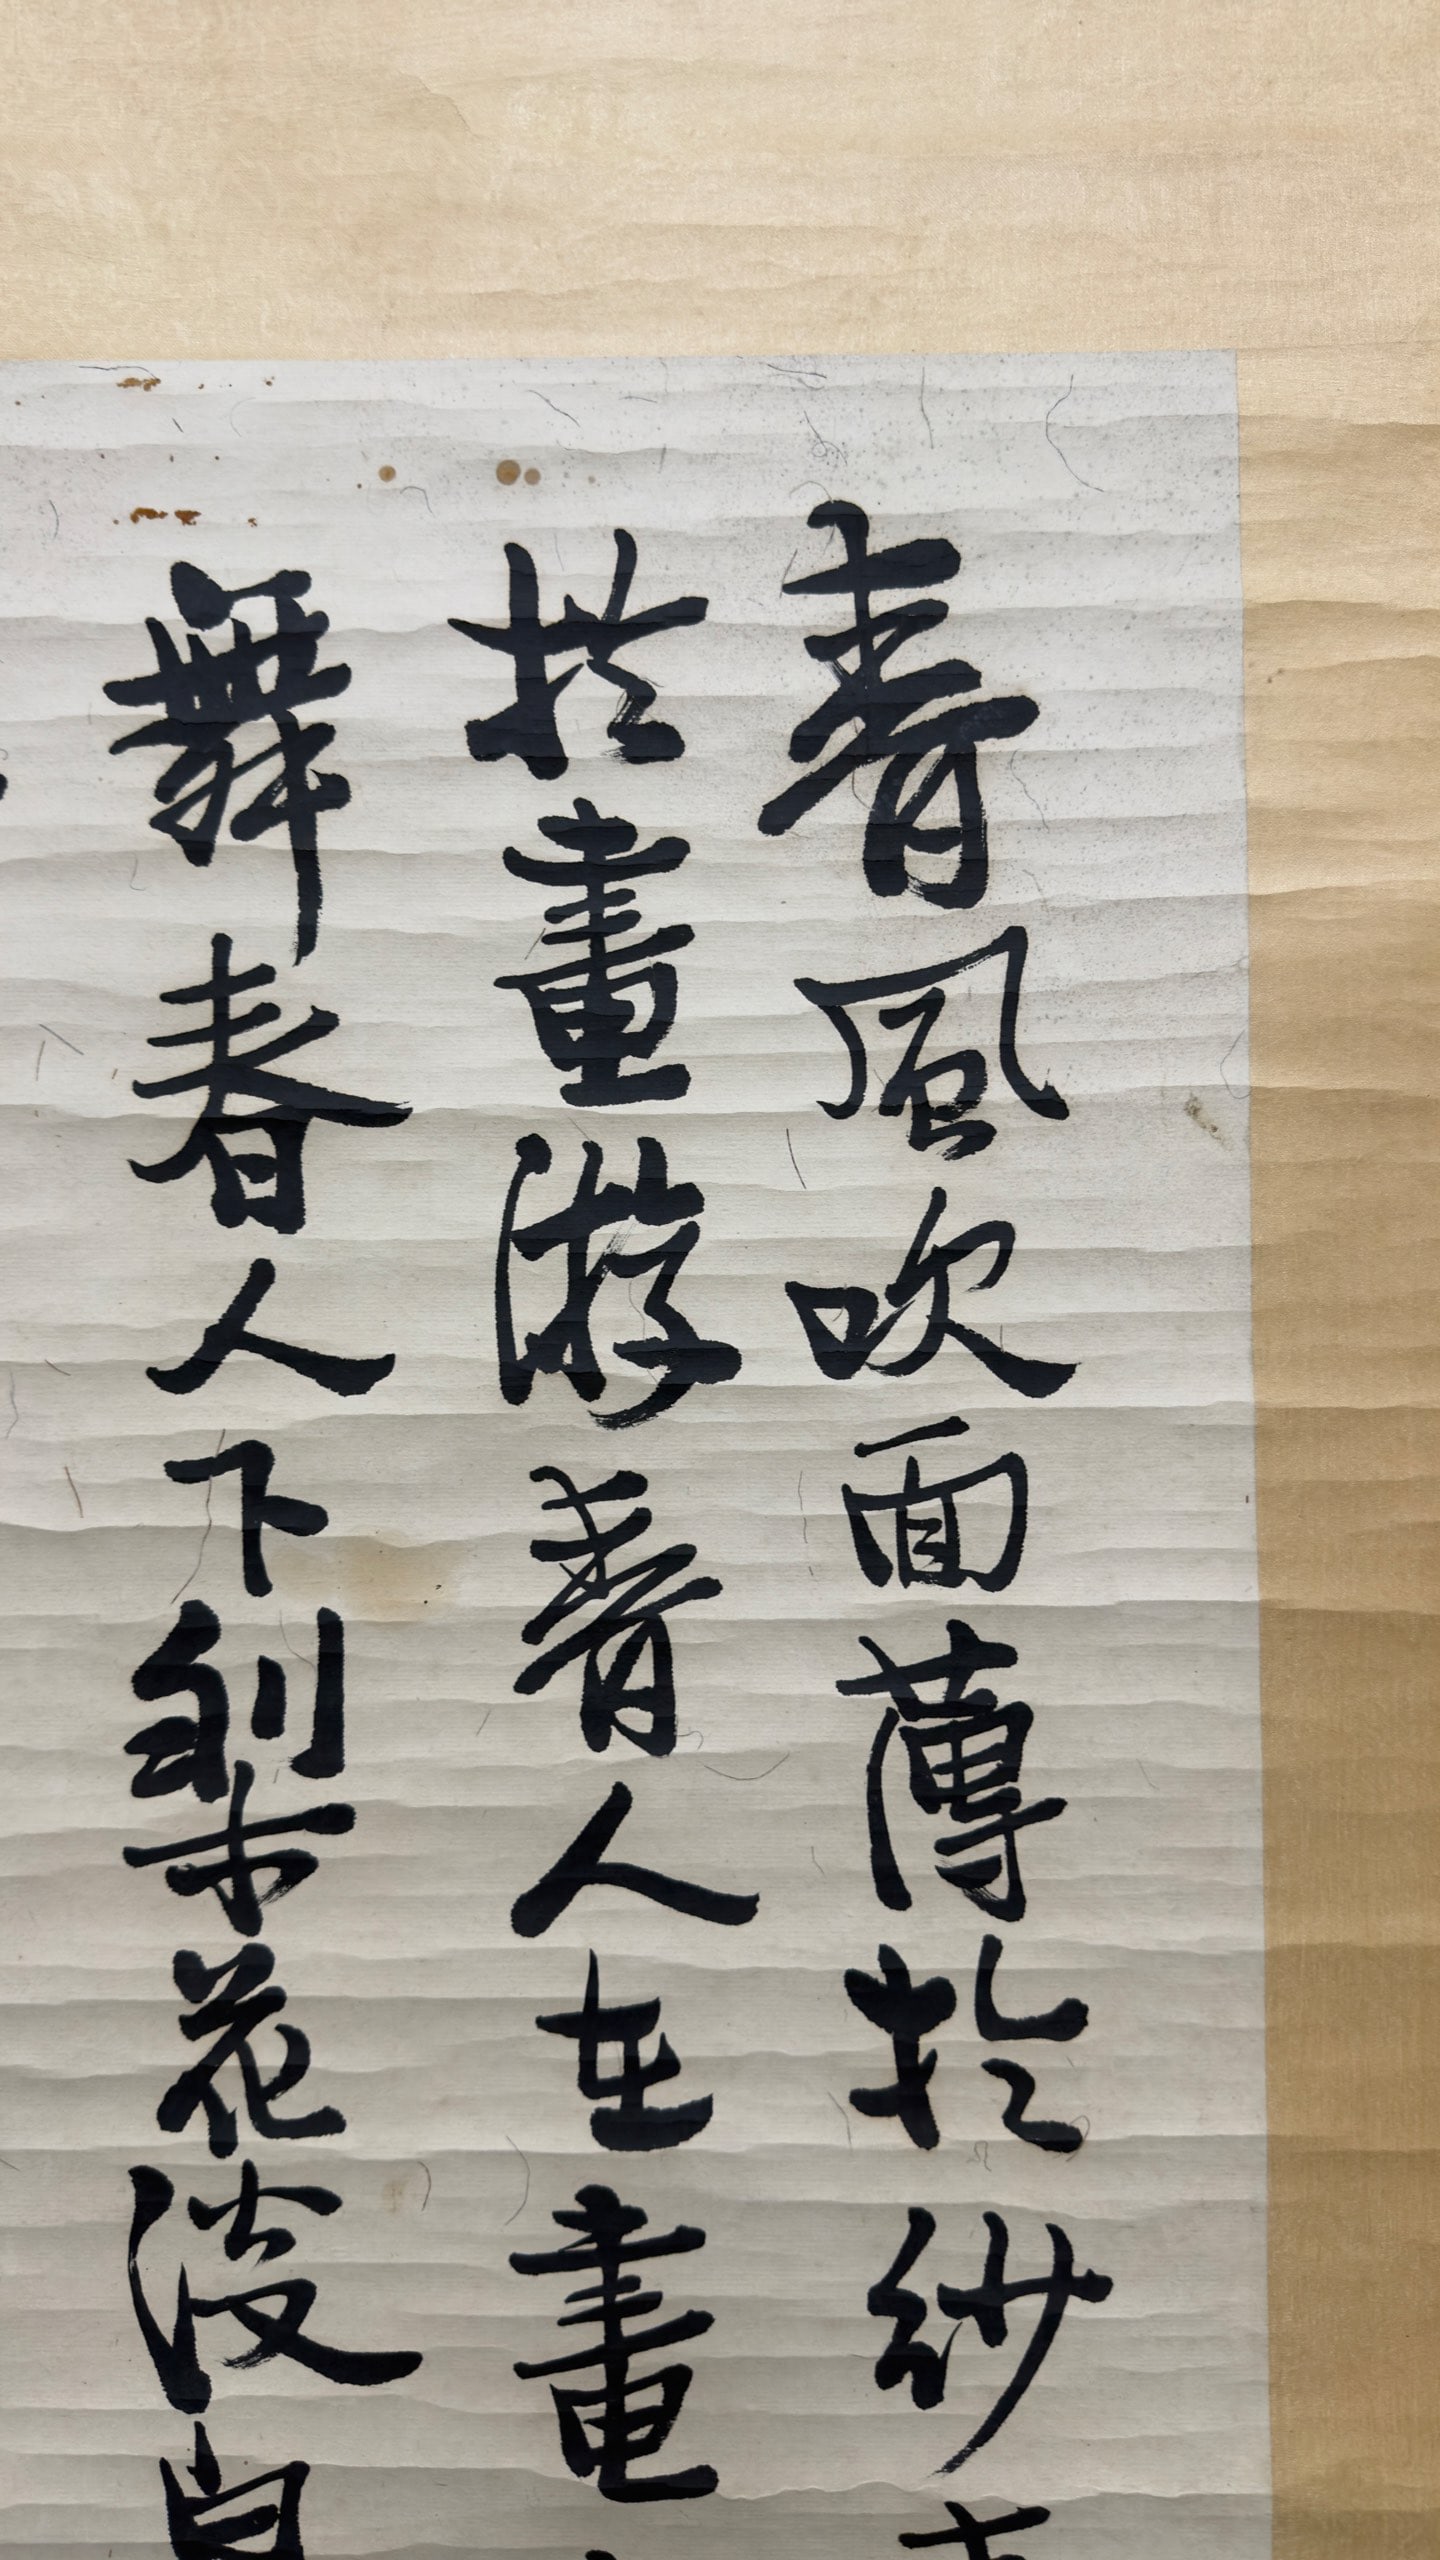 春風吹面薄於紗
於畫游春人在畫
舞春人下梨花淡白